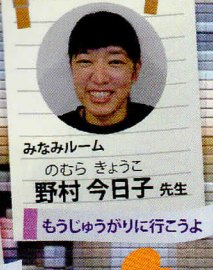 みなみルーム
のむら きょうこ
野村 今日子 先生
もうじゅうがりに行こうよ